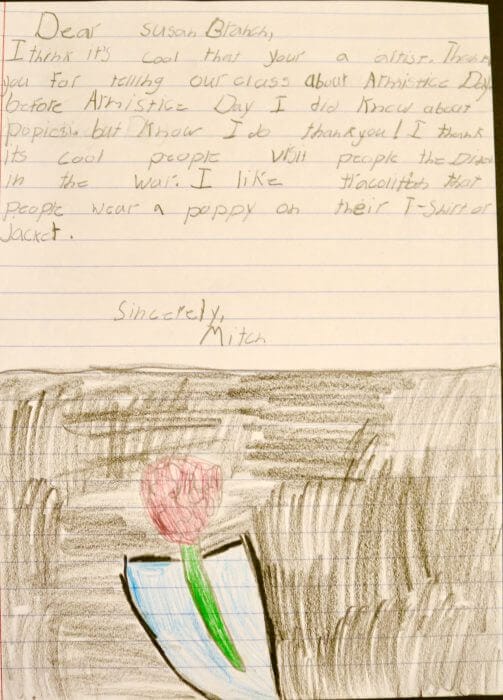 Dear Susan Branch,
I think it's cool that your a artist. Thank
you for telling our class about Armistice Day
before Armistice Day I did know about
but know I do thankyou! I think
its cool people visit people the Died
in the war. I like that
people wear a poppy on their T-Shirt or
Jacket.
Sincerely,
Mitch